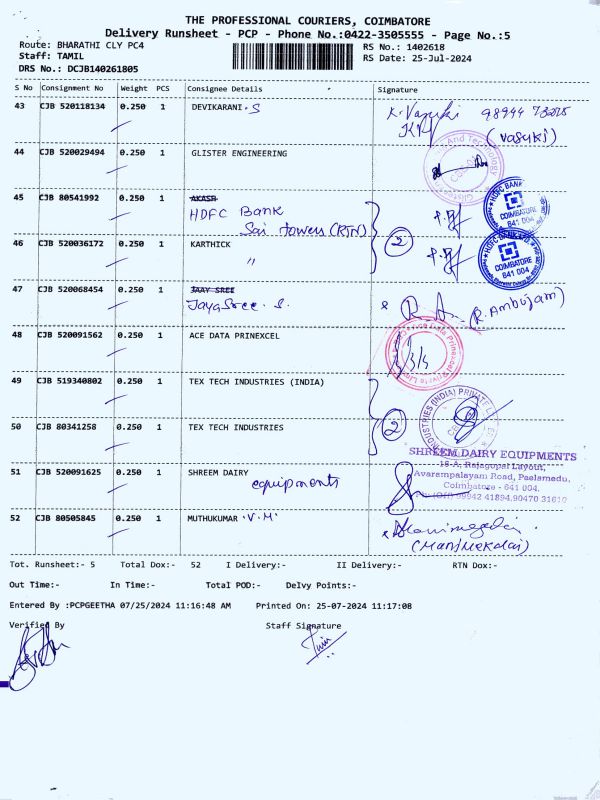 THE PROFESSIONAL COURIERS, COIMBATORE
Delivery Runsheet - PCP - Phone No.:0422-3505555 - Page No.:5
Route: BHARATHI CLY PC4
RS No.: 1402618
Staff: TAMIL
RS Date: 25-Jul-2024
DRS No.: DCJB140261805
S No Consignment No Weight PCS Consignee Details Signature
43 CJB 520118134 0.250 1 DEVIKARANI. S
K. Vasuki
(vasuki)
44 CJB 520029494 0.250 1 GLISTER ENGINEERING
45 CJB 80541992 0.250 1 AKASH
HDFC Bank
Sai towers (RTN)
2
HDFC BANK
COIMBATORE
641 004
46 CJB 520036172 0.250 1 KARTHICK
"
HDFC BANK LTD
COIMBATORE
641 004
47 CJB 520068454 0.250 1 JAAY SREE
Jayasree. S.
(R. Ambujam)
48 CJB 520091562 0.250 1 ACE DATA PRINEXCEL
49 CJB 519340802 0.250 1 TEX TECH INDUSTRIES (INDIA)
2
INDUSTRIES (INDIA) PRIVATE
50 CJB 80341258 0.250 1 TEX TECH INDUSTRIES
51 CJB 520091625 0.250 1 SHREEM DAIRY
equipments
SHREEM DAIRY EQUIPMENTS
18-A, Rajagopal Layout,
Avarampalayam Road, Peelamedu,
Coimbatore - 641 004.
99942 41894,90470 31610
52 CJB 80505845 0.250 1 MUTHUKUMAR .V.M.
Manimegalai
(Manimekalai)
Tot. Runsheet:- 5 Total Dox:- 52 I Delivery:- II Delivery:- RTN Dox:-
Out Time:- In Time:- Total POD:- Delvy Points:-
Entered By :PCPGEETHA 07/25/2024 11:16:48 AM Printed On: 25-07-2024 11:17:08
Verified By Staff Signature